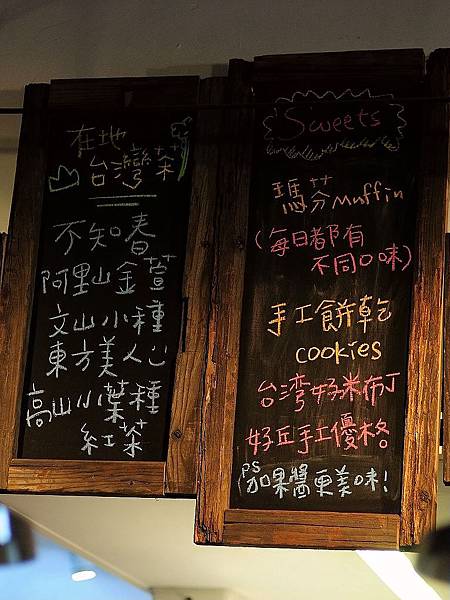 在地
台灣茶
不知春
阿里山金萱
文山小種
東方美人心
高山小葉種
紅茶
Sweets
瑪芬Muffin
(每日都有
不同口味)
手工餅乾
cookies
台灣好米布丁
好丘手工優格
(PS
加果醬更美味!